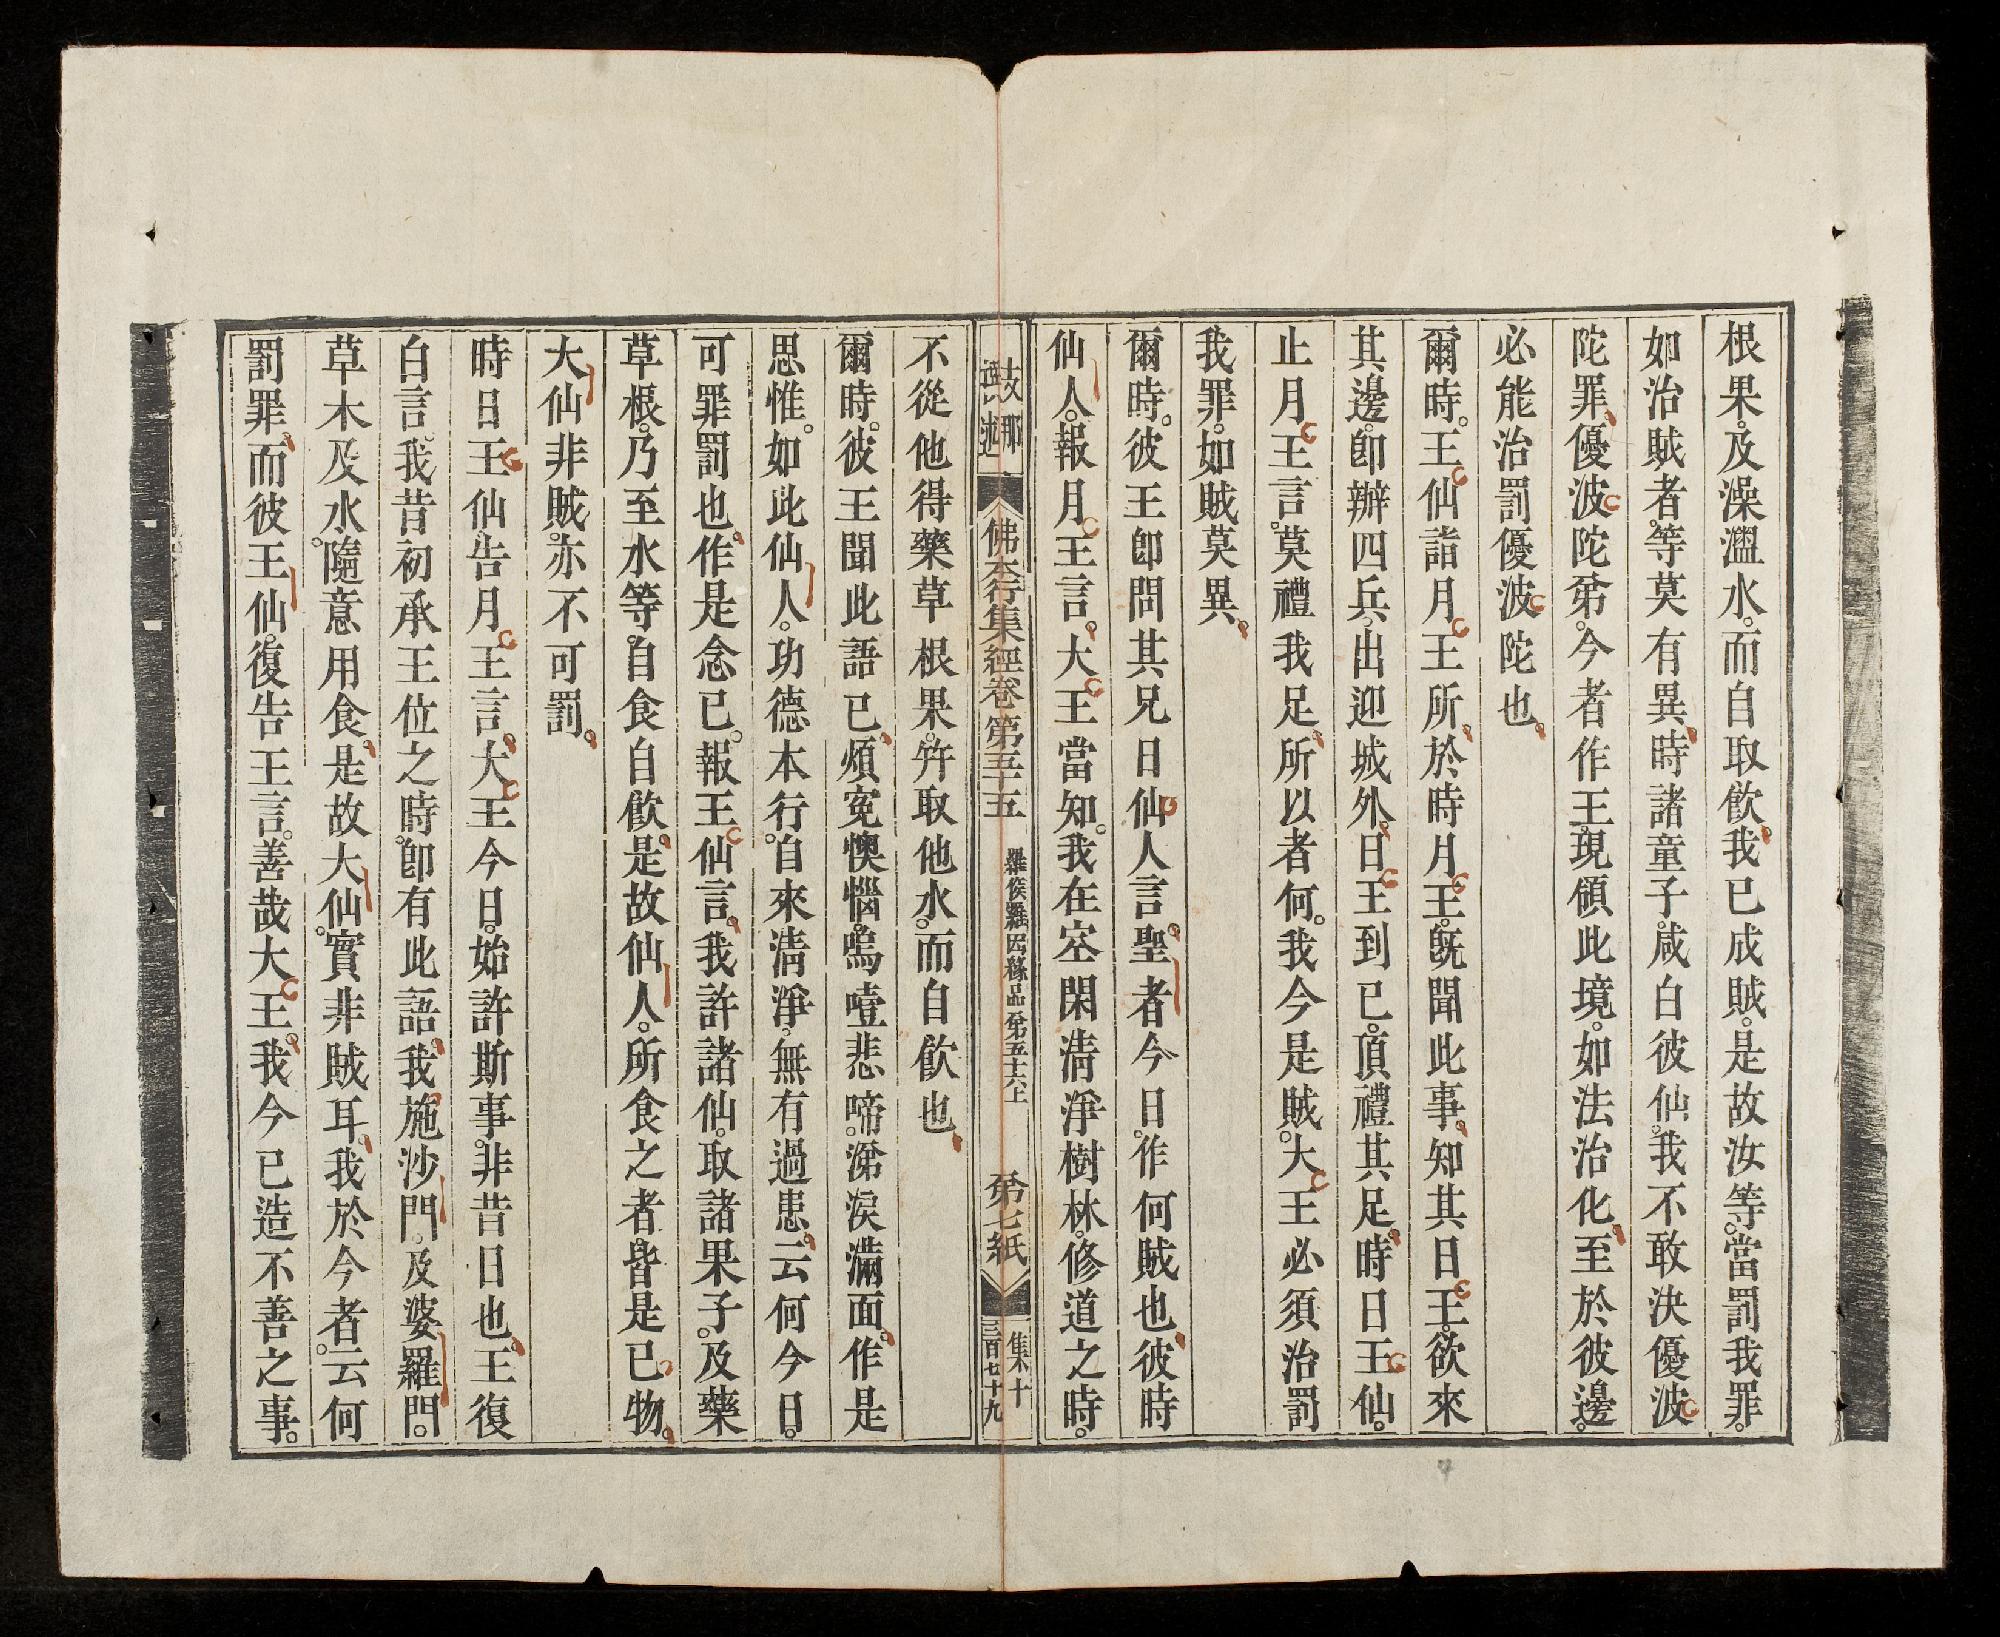 根果。及澡漍水。而自取飲。我已成賊。是故汝等。當罰我罪。
如治賊者。等莫有異。時諸童子。咸白彼仙。我不敢決優波
陀罪。優波陀弟。今者作王。現領此境。如法治化。至於彼邊。
必能治罰優波陀也。
爾時。王仙詣月王所。於時月王。旣聞此事。知其日王。欲來
其邊。卽辦四兵。出迎城外。日王到已。頂禮其足。時日王仙。
止月王言。莫禮我足。所以者何。我今是賊。大王必須治罰
我罪。如賊莫異。
爾時。彼王卽問其兄日仙人言。聖者今日。作何賊也。彼時
仙人。報月王言。大王當知。我在空閑淸淨樹林。修道之時。
佛本行集經卷第五十五 羅睺羅因緣品第五十六上 第七紙 集十
三百七十九
不從他得藥草根果。幷取他水。而自飲也。
爾時。彼王聞此語已。煩寃懊惱。嗚噎悲啼。涕淚滿面。作是
思惟。如此仙人。功德本行。自來淸淨。無有過患。云何今日。
可罪罰也。作是念已。報王仙言。我許諸仙。取諸果子。及藥
草根。乃至水等。自食自飲。是故仙人。所食之者。皆是已物。
大仙非賊。亦不可罰。
時日王仙。告月王言。大王今日。始許斯事。非昔日也。王復
白言。我昔初承王位之時。卽有此語。我施沙門。及婆羅門。
草木及水。隨意用食。是故大仙。實非賊耳。我於今者。云何
罰罪。而彼王仙。復告王言。善哉大王。我今已造不善之事。